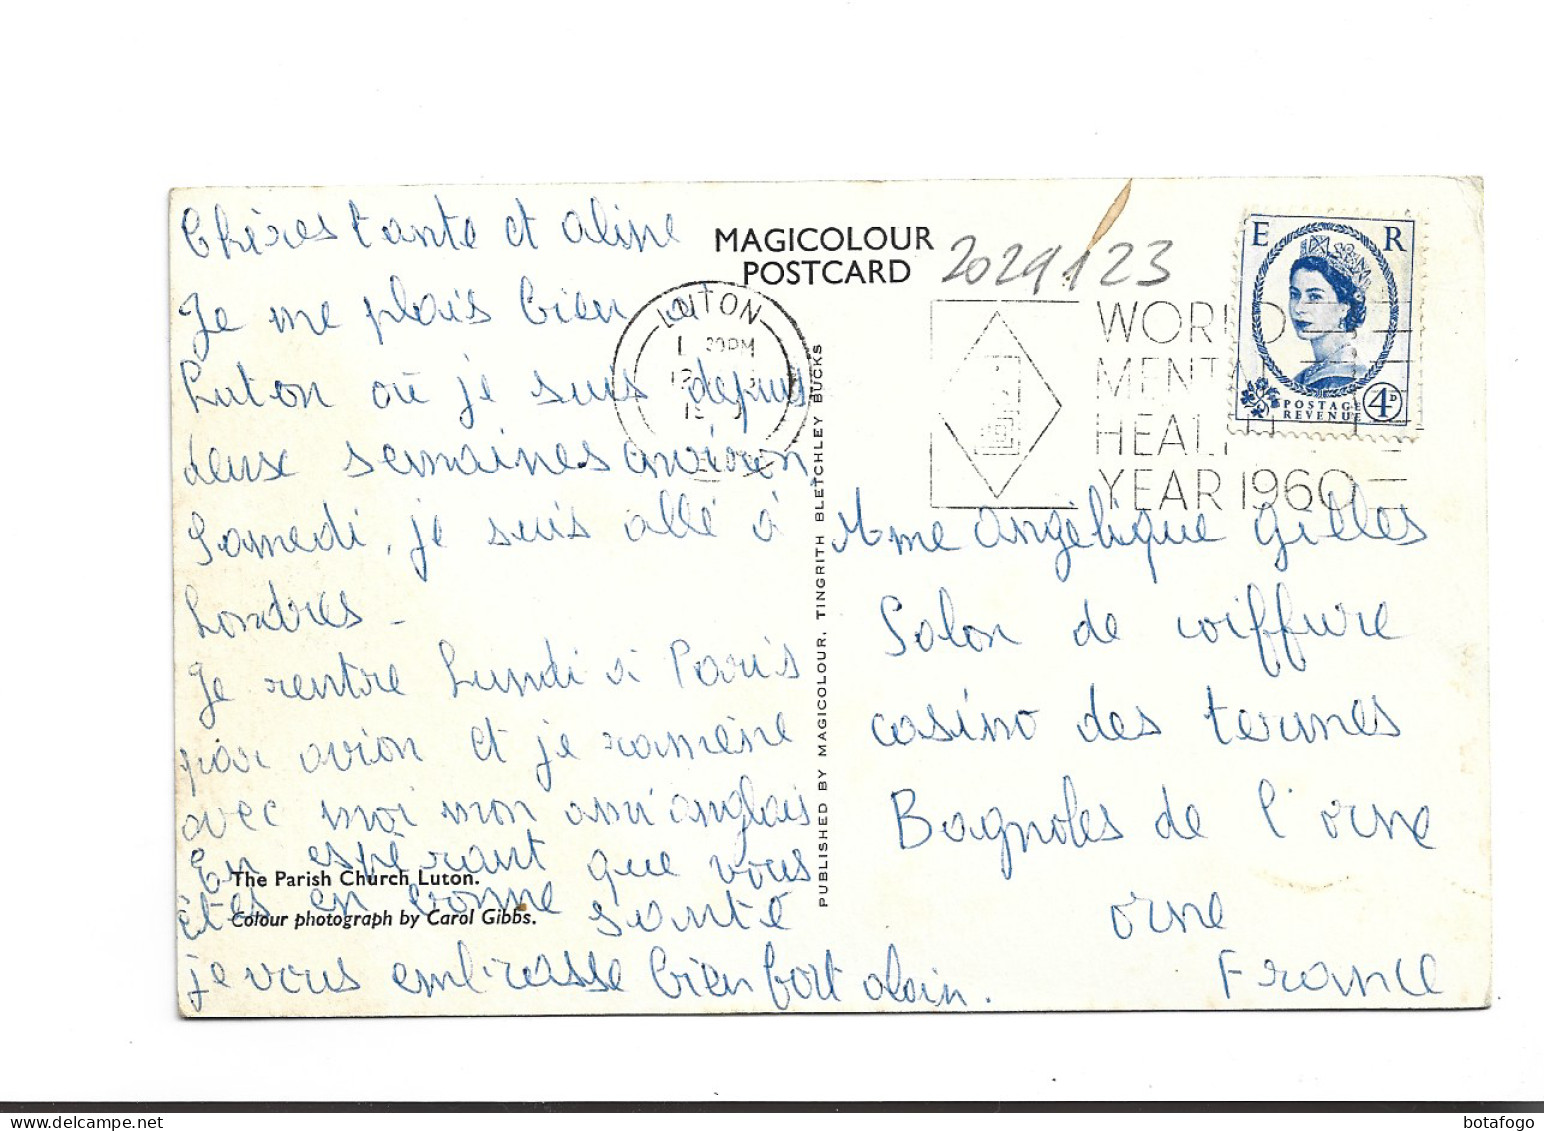 Chères tante et aline
Je me plais bien a
Luton où je suis depuis
deux semaines environ,
Samedi, je suis allé à
Londres -
Je rentre Lundi à Paris
par avion et je ramène
avec moi mon ami anglais
En espérant que vous
êtes en bonne santé
je vous embrasse bien fort alain.
The Parish Church Luton.
Colour photograph by Carol Gibbs.
MAGICOLOUR
POSTCARD
PUBLISHED BY MAGICOLOUR, TINGRITH BLETCHLEY BUCKS
2029123
LUTON
30PM
WORLD
MENTAL
HEALTH
YEAR 1960
E R
POSTAGE
REVENUE
4D
Mme Angèlique Gilles
Salon de coiffure
casino des termes
Bagnoles de l'orne
orne
France
botafogo